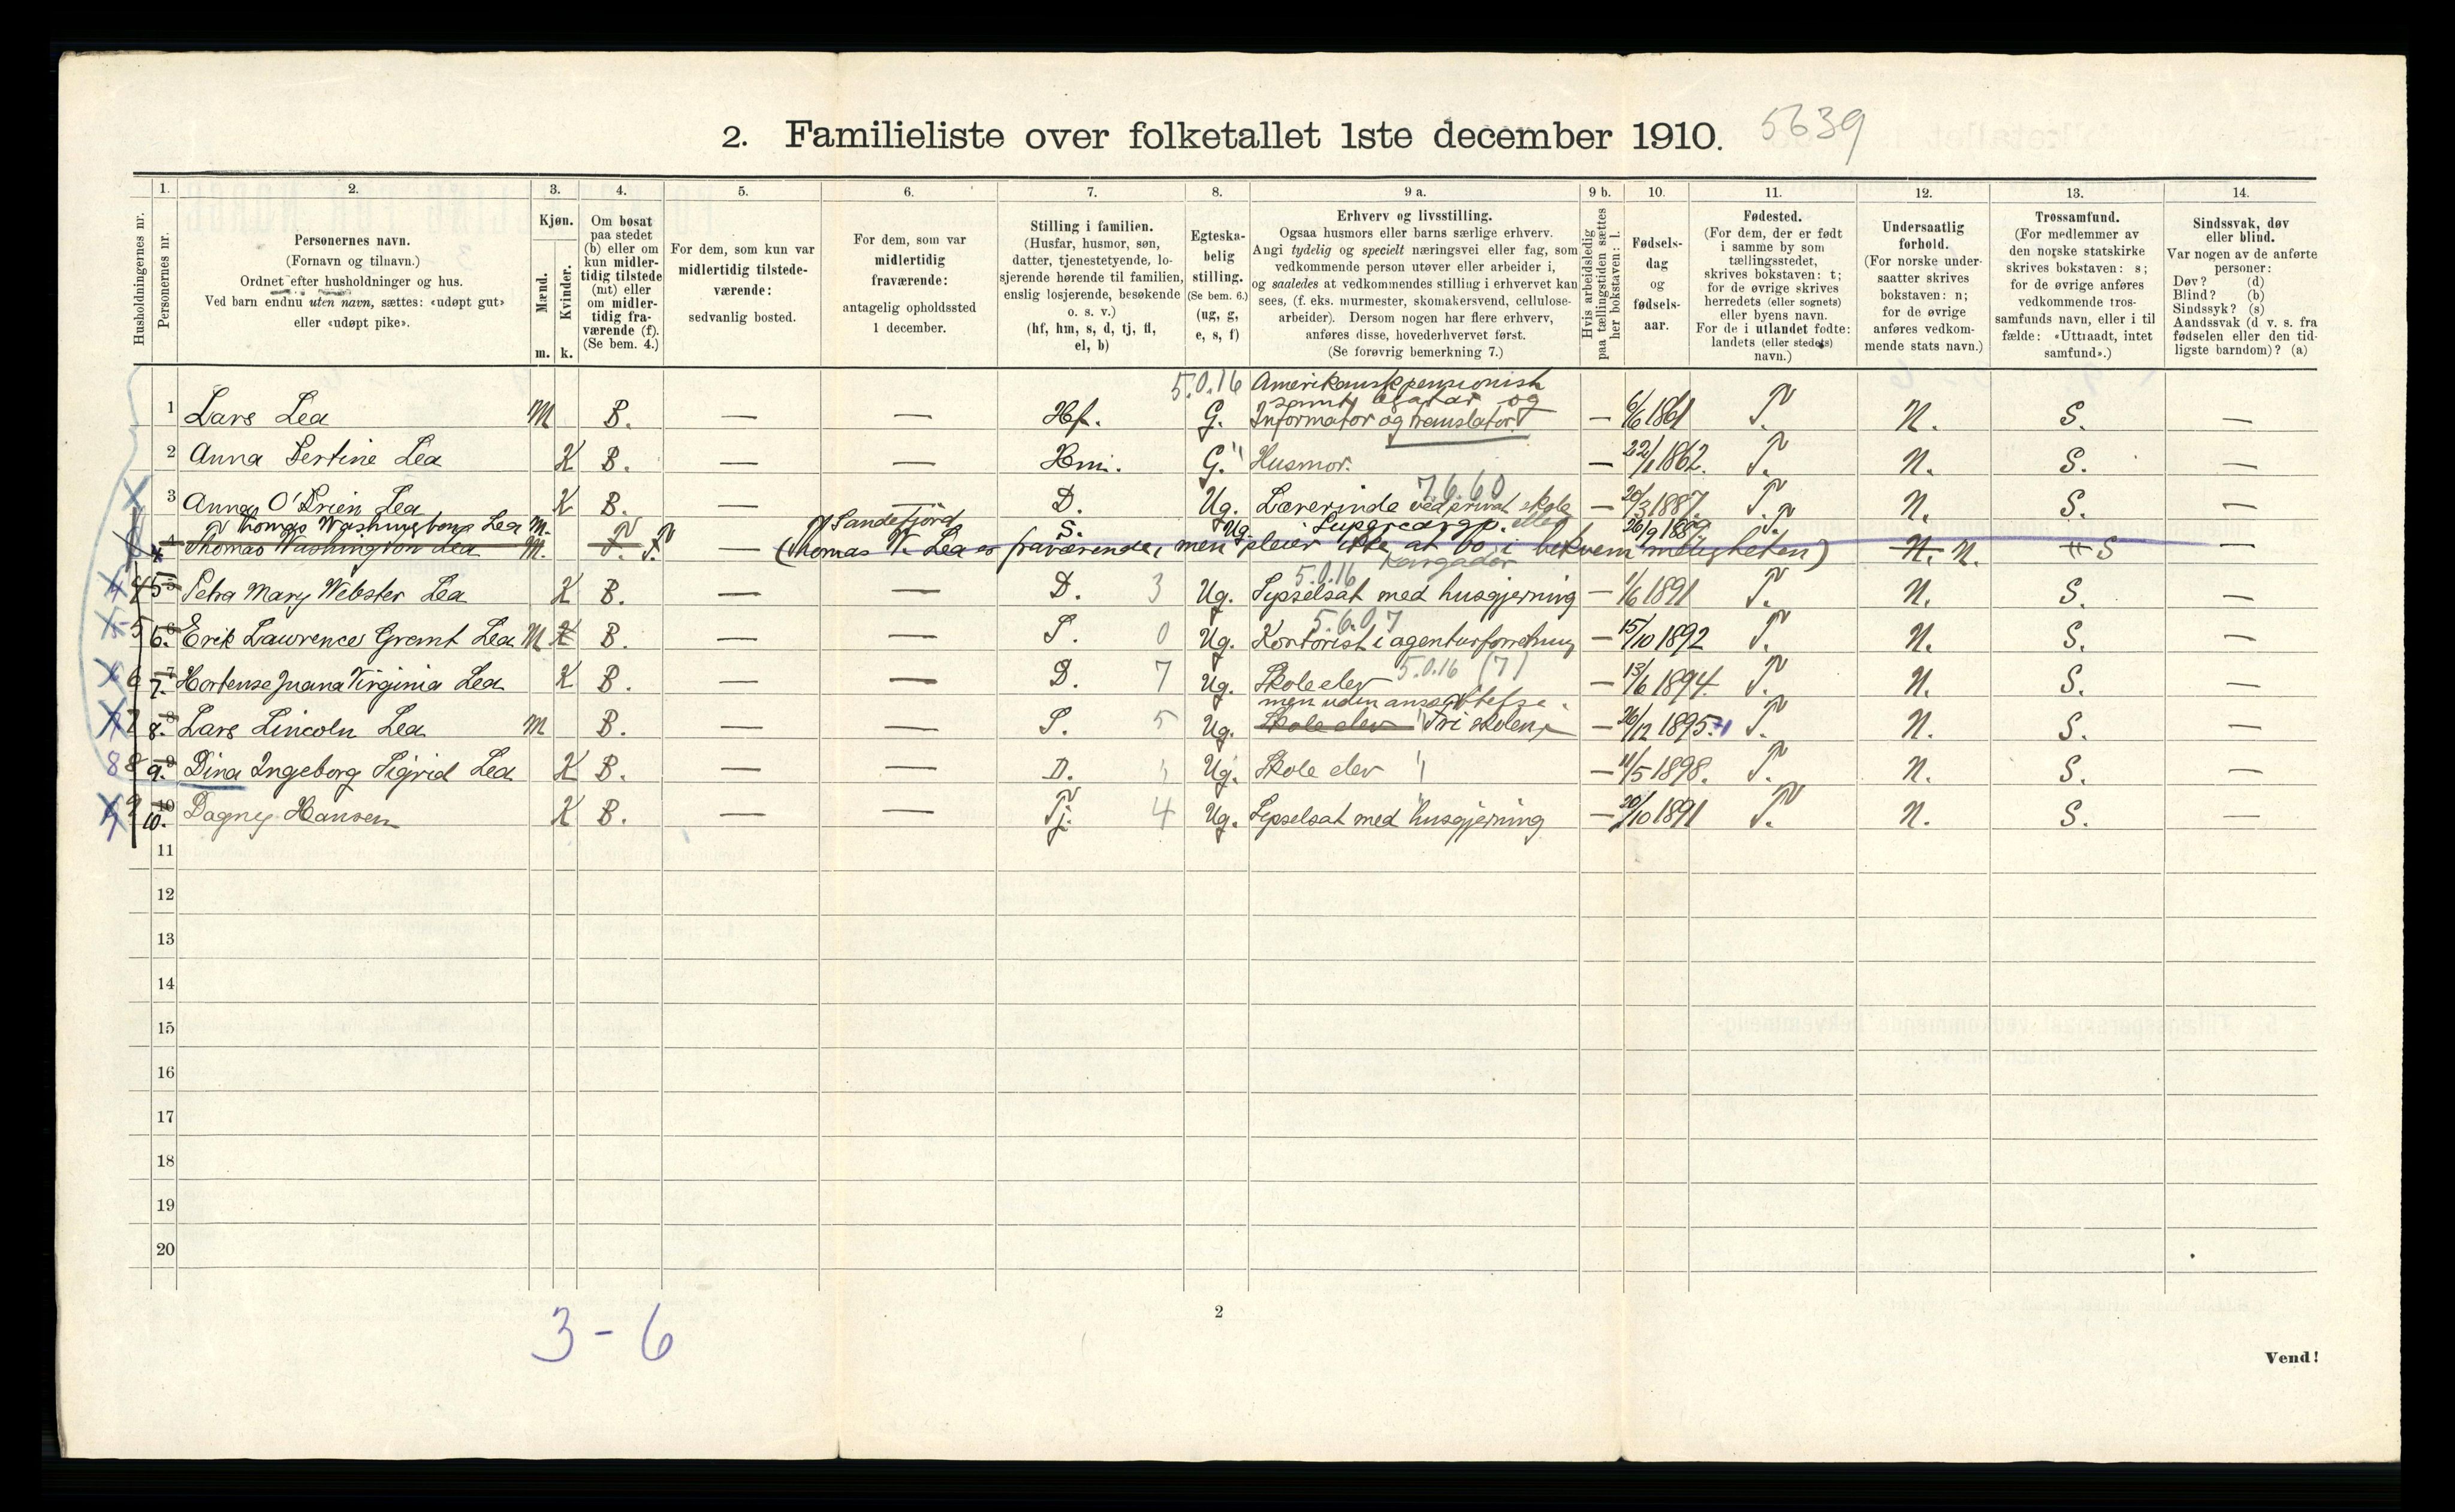 2. Familieliste over folketallet 1ste december 1910. 5639
Husholdningernes nr.
1. Personernes nr.
2. Personernes navn.
(Fornavn og tilnavn.)
Ordnet efter husholdninger og hus.
Ved barn endnu uten navn, sættes: «udøpt gut»
eller «udøpt pike».
3. Kjøn.
Mænd. m.
Kvinder. k.
4. Om bosat
paa stedet
(b) eller om
kun midler-
tidig tilstede
(mt) eller
om midler-
tidig fra-
værende (f).
(Se bem. 4.)
5. For dem, som kun var
midlertidig tilstede-
værende:
sedvanlig bosted.
6. For dem, som var
midlertidig
fraværende:
antagelig opholdssted
1 december.
7. Stilling i familien.
(Husfar, husmor, søn,
datter, tjenestetyende, lo-
sjerende hørende til familien,
enslig losjerende, besøkende
o. s. v.)
(hf, hm, s, d, tj, fl,
el, b)
8. Egteska-
belig
stilling.
(Se bem. 6.)
(ug, g,
e, s, f)
9 a. Erhverv og livsstilling.
Ogsaa husmors eller barns særlige erhverv.
Angi tydelig og specielt næringsvei eller fag, som
vedkommende person utøver eller arbeider i,
og saaledes at vedkommendes stilling i erhvervet kan
sees, (f. eks. murmester, skomakersvend, cellulose-
arbeider). Dersom nogen har flere erhverv,
anføres disse, hovederhvervet først.
(Se forøvrig bemerkning 7.)
9 b. Hvis arbeidsledig
paa tællingstiden sættes
her bokstaven: l.
10. Fødsels-
dag
og
fødsels-
aar.
11. Fødested.
(For dem, der er født
i samme by som
tællingsstedet,
skrives bokstaven: t;
for de øvrige skrives
herredets (eller sognets)
eller byens navn.
For de i utlandet fødte:
landets (eller stedets)
navn.)
12. Undersaatlig
forhold.
(For norske under-
saatter skrives
bokstaven: n;
for de øvrige
anføres vedkom-
mende stats navn.)
13. Trossamfund.
(For medlemmer av
den norske statskirke
skrives bokstaven: s;
for de øvrige anføres
vedkommende tros-
samfunds navn, eller i til-
fælde: «Uttraadt, intet
samfund».)
14. Sindssvak, døv
eller blind.
Var nogen av de anførte
personer:
Døv? (d)
Blind? (b)
Sindssyk? (s)
Aandssvak (d. v. s. fra
fødselen eller den tid-
ligste barndom)? (a)
5.0.16 Amerikansk pensionist
og
1 Lars Lea M B. — — Hf. G. Informator og translatør — 6/6 1861 T. N. S. —
2 Anna Bertine Lea K B. — — Hm. G. " Husmor. — 22/1 1862. T. N. S. —
7.6.60
3 Anna O'Brien Lea K B. — — D. Ug. Lærerinde ved privat skole — 20/3 1887. T. N. S. —
Thomas Washington Lea M. Sandefjord S. Ug. Supercargo. eller 26/9 1889 T.
4 Thomas Washington Lea M. F. F. — (Thomas W. Lea er fraværende, men pleier ikke at bo i bekvemmeligheten) N. N. S —
5.0.16 Kargadör
4 5 Petra Mary Webster Lea K B. — — D. 3 Ug. Sysselsat med husgjerning — 1/6 1891 T. N. S. —
5.6.07
5 6. Erik Lawrence Grant Lea M K B. — — S. 0 Ug. Kontorist i agenturforretning — 15/10 1892 T. N. S. —
6 7. Hortense Juana Virginia Lea K B. — — D. 7 Ug. Skoleelev 5.0.16 (7) — 13/6 1894 T. N. S. —
men uden ansættelse.
7 8. Lars Lincoln Lea M B. — — S. 5 Ug. Skoleelev " Fri skolen — 26/12 1895. T. N. S. —
8 8 9. Dina Ingeborg Sigrid Lea K B. — — D. Ug. Skole elev " — 11/5 1898. T. N. S. —
9 10. Dagny Hansen K B. — — Tj. 4 Ug. Sysselsat med husgjerning — 20/10 1891 T. N. S. —
11
12
13
14
15
16
17
18
19
20
3 - 6
2
Vend!